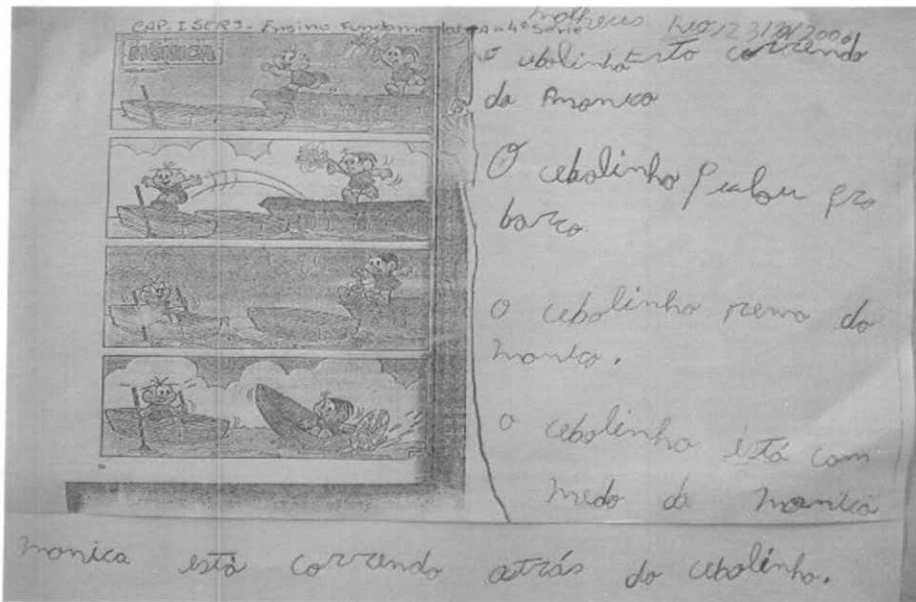 CAP. I SCR9 - Ensino Fundamental 1ª a 4ª Série
Matheus
MÔNICA
o cebolinho está correndo
da Amonica
O cebolinho Pulou pro
barco
o cebolinho remo da
monica.
o cebolinho istá com
medo da monica
monica está correndo atrás do cebolinho.